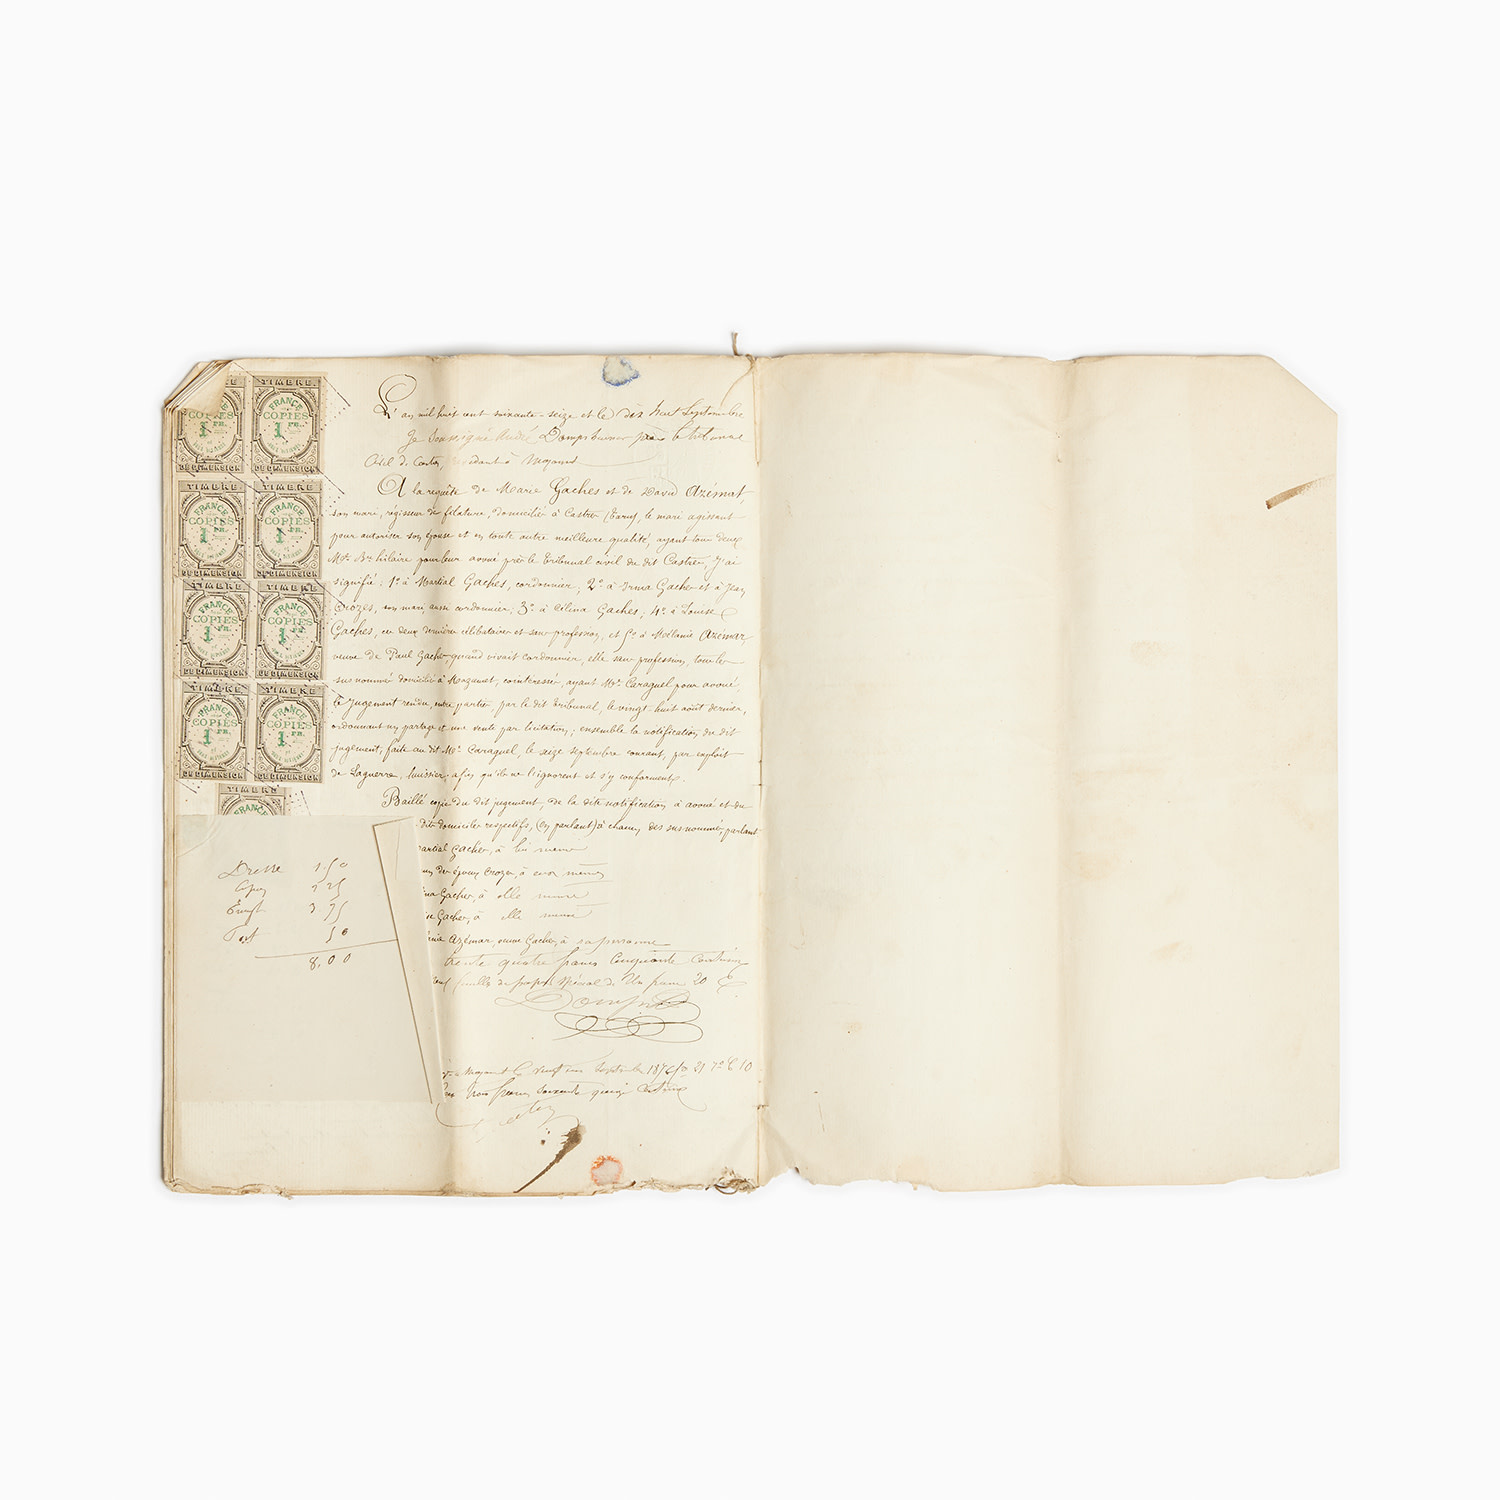 TIMBRE
FRANCE
COPIES
1 FR.
DE DIMENSION
TIMBRE
FRANCE
COPIES
1 FR.
DE DIMENSION
TIMBRE
FRANCE
COPIES
1 FR.
DE DIMENSION
TIMBRE
FRANCE
COPIES
1 FR.
DE DIMENSION
TIMBRE
FRANCE
COPIES
1 FR.
DE DIMENSION
TIMBRE
FRANCE
COPIES
1 FR.
DE DIMENSION
TIMBRE
FRANCE
COPIES
1 FR.
DE DIMENSION
TIMBRE
FRANCE
COPIES
1 FR.
DE DIMENSION
TIMBRE
FRANCE
L'an mil huit cent soixante-seize et le dix huit Septembre
Je soussigné André près le tribunal
Civil de Castres, résidant à Mazamet
A la requête de Marie Gaches et de David Azémat,
son mari, régisseur de filature, domiciliés à Castres (Tarn), le mari agissant
pour autoriser son épouse et en toute autre meilleure qualité, ayant tous deux
Me. Bn. hilaire pour leur avoué près le tribunal civil du dit Castres, J'ai
signifié: 1° à Martial Gaches, cordonnier; 2° à Irma Gaches et à Jean
Crozes, son mari, aussi cordonnier; 3° à Gaches; 4° à Louise
Gaches, ces deux dernières célibataires et sans profession, et 5° à Mélanie Azémar,
veuve de Paul Gaches quand vivait cordonnier, elle sans profession, tous les
sus nommés domiciliés à Mazamet, cointéressés, ayant Me. Caraguel pour avoué,
le jugement rendu, entre parties, par le dit tribunal, le vingt-huit août dernier,
ordonnant un partage et une vente par licitation; ensemble la notification du dit
jugement, faite au dit Me. Caraguel, le seize septembre courant, par exploit
de Laguerre, huissier afin qu'ils ne l'ignorent et s'y conforment.
Baillé copie du dit jugement, de la dite notification à avoué et du
dits domiciles respectifs, (en parlant) à chacun des sus nommés, parlant
artial Gaches, à lui même
des époux Crozes, à eux mêmes
Gaches, à elle même
Gaches, à elle même
Azémar, veuve Gaches, à sa personne
trente quatre francs cinquante centimes
feuilles de papier spécial de Un franc 20 c
septembre 1876 fo 21 Vo C 10
trois francs soixante quinze centimes
Dresse 1.50
Copies 2 25
3.75
50
8.00